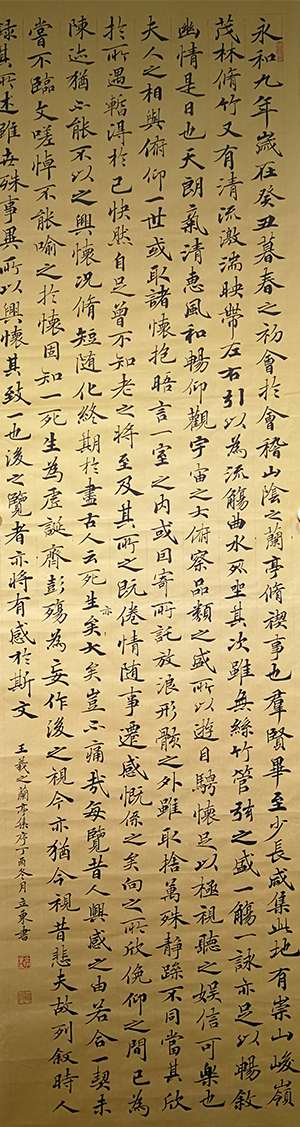 永和九年歲在癸丑暮春之初會於會稽山陰之蘭亭脩禊事也羣賢畢至少長咸集此地有崇山峻嶺
茂林脩竹又有清流激湍映帶左右引以為流觴曲水列坐其次雖無絲竹管弦之盛一觴一詠亦足以暢敘
幽情是日也天朗氣清惠風和暢仰觀宇宙之大俯察品類之盛所以遊目騁懷足以極視聽之娛信可樂也
夫人之相與俯仰一世或取諸懷抱晤言一室之內或因寄所託放浪形骸之外雖取捨萬殊靜躁不同當其欣
於所遇暫得於己快然自足曾不知老之將至及其所之既倦情隨事遷感慨係之矣向之所欣俛仰之間已為
陳迹猶不能不以之興懷況脩短隨化終期於盡古人云死生亦大矣豈不痛哉每覽昔人興感之由若合一契未
嘗不臨文嗟悼不能喻之於懷固知一死生為虛誕齊彭殤為妄作後之視今亦猶今視昔悲夫故列敘時人
錄其所述雖世殊事異所以興懷其致一也後之覽者亦將有感於斯文
王羲之蘭亭集序丁酉冬月立東書